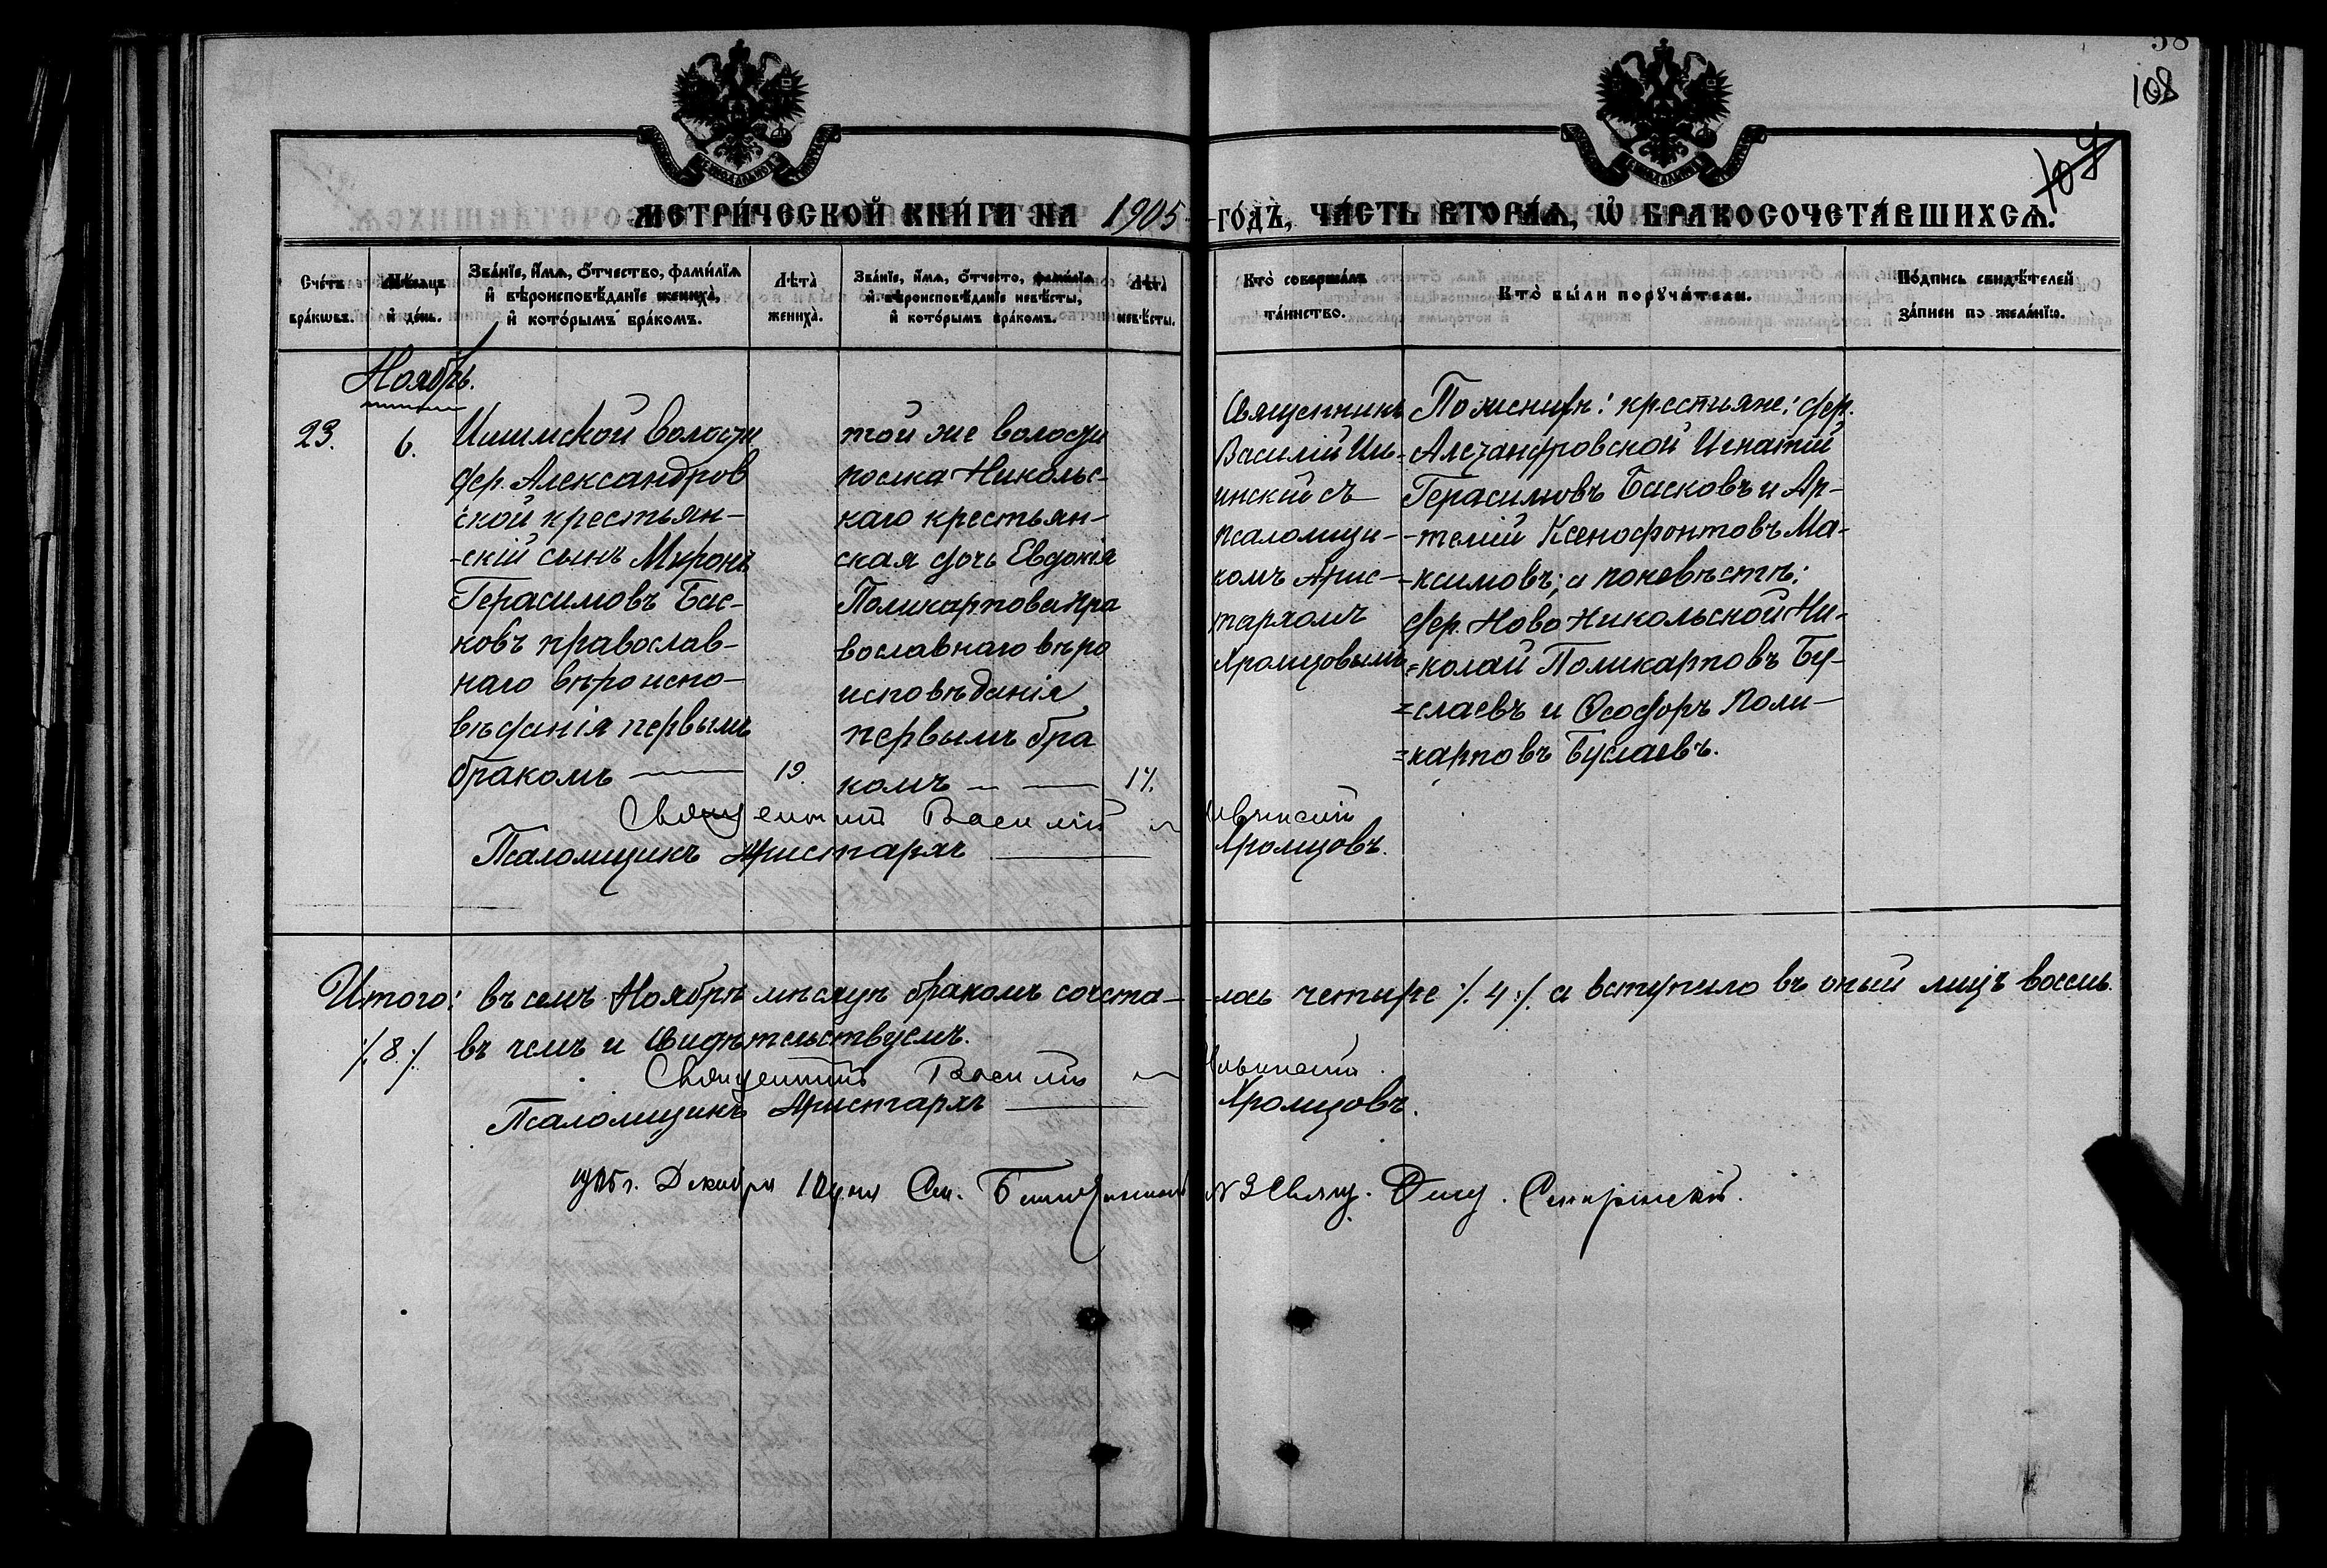 58
108
107
МЕТРИЧЕСКОЙ КНИГИ НА 1905 ГОДЪ, ЧАСТЬ ВТОРАЯ, Ѡ БРАКОСОЧЕТАВШИХСЯ.
Счетъ браковъ.
Мѣсяцъ и день.
Званіе, имя, отчество, фамилія
и вѣроисповѣданіе жениха,
и которымъ бракомъ.
Лѣта жениха.
Званіе, имя, отчесто, фамилія
и вѣроисповѣданіе невѣсты,
и которымъ бракомъ.
Лѣта невѣсты.
Кто совершалъ
таинство.
Кто были поручители.
Подпись свидѣтелей
записи по желанію.
Ноябрь.
23.
6.
Ишимской волости
дер. Александров
ской крестьян-
-скій сынъ Миронъ
Герасимовъ Бас-
ковъ православ-
наго вѣроиспо-
вѣданія первымъ
бракомъ
19.
той же волости
поселка Никольс-
каго крестьян-
ская дочь Евдокія
Поликарпова пра
вославнаго вѣро
исповѣданія
первымъ бра
комъ
17.
Священникъ
Василій
инскій съ
псаломщи-
комъ Арис-
тархомъ
Хромцовымъ
По женихѣ: крестьяне: дер.
Александровской Игнатій
Герасимовъ Басковъ и Ар-
-темій Ксенофонтовъ Ма-
-ксимовъ; и по невѣстѣ:
дер. Ново Никольской Ни-
=колай Поликарповъ Бу-
=слаевъ и Ѳеодоръ Поли-
=карповъ Буслаевъ.
Священникъ Василій
Псаломщикъ Аристархъ Хромцовъ.
Итого: въ семъ Ноябрѣ мѣсяцѣ бракомъ сочета-лось четыре /.4./. а вступило въ оный лицъ восемь
/.8./. въ чемъ и свидѣтельствуемъ.
Священникъ Василій
Псаломщикъ Аристархъ Хромцовъ.
1905 г. Декабря Свящ.